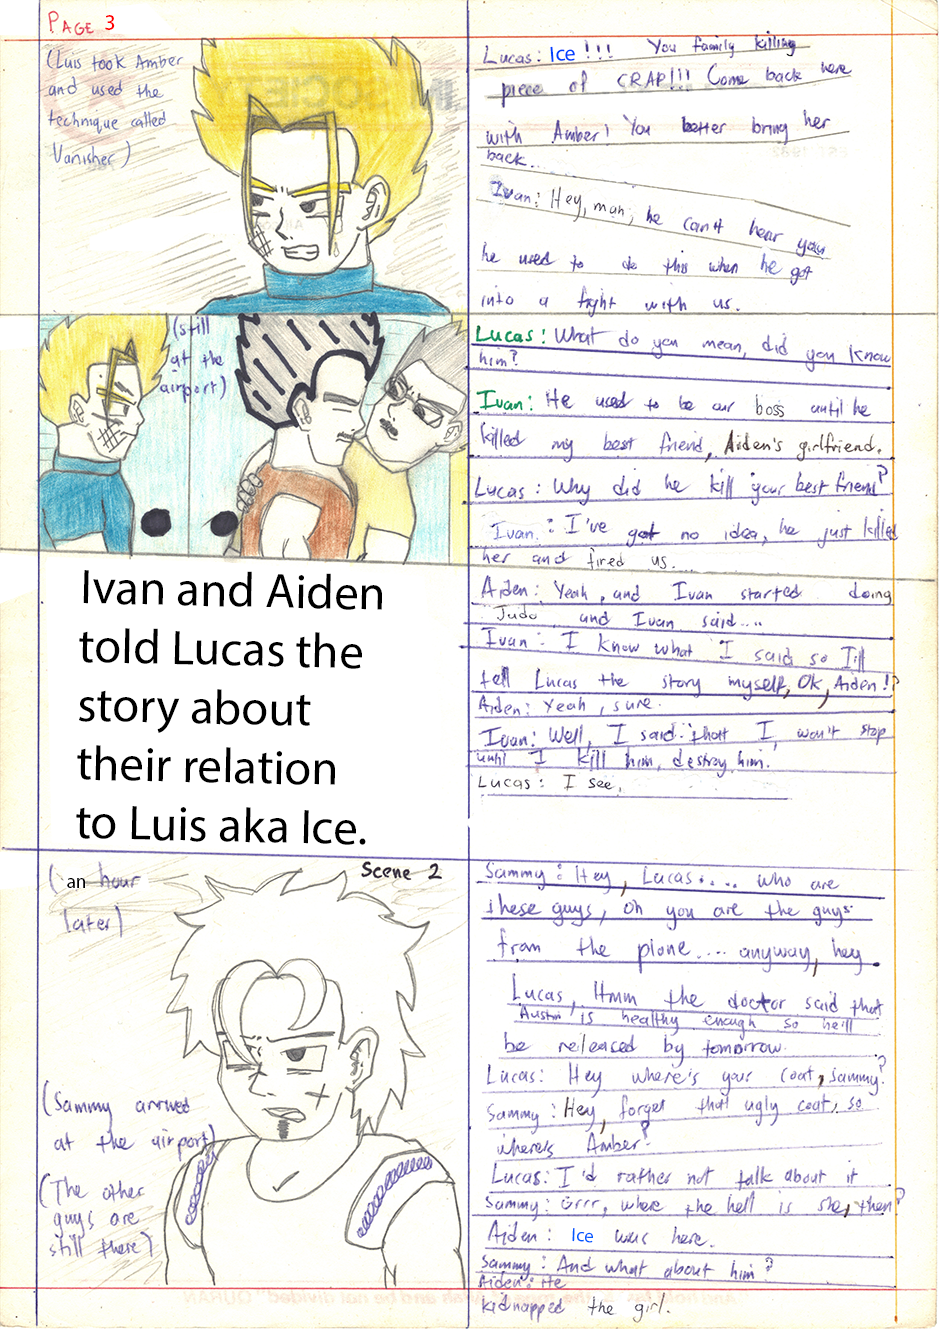 PAGE 3
(Luis took Amber
and used the
technique called
Vanisher)
Lucas: Ice!!! You family killing
piece of CRAP!!! Come back here
with Amber! You better bring her
back...
Ivan: Hey, man, he can't hear you
he used to do this when he got
into a fight with us.
(still
at the
airport)
Lucas: What do you mean, did you know
him?
Ivan: He used to be our boss until he
killed my best friend, Aiden's girlfriend.
Lucas: Why did he kill your best friend?
Ivan: I've got no idea, he just killed
her and fired us....
Ivan and Aiden
told Lucas the
story about
their relation
to Luis aka Ice.
Aiden: Yeah, and Ivan started doing
Judo, and Ivan said....
Ivan: I know what I said so I'll
tell Lucas the story myself, Ok, Aiden!?
Aiden: Yeah, sure.
Ivan: Well, I said that I, won't stop
until I kill him, destroy him.
Lucas: I see.
Scene 2
(an hour
later)
(Sammy arrived
at the airport)
(The other
guys are
still there)
Sammy: Hey, Lucas.... who are
these guys, oh you are the guys
from the plone.... anyway, hey.
Lucas, Hmm the doctor said that
Austin is healthy enough so he'll
be released by tomorrow.
Lucas: Hey where's your coat, Sammy?
Sammy: Hey, forget that ugly coat, so
where's Amber?
Lucas: I'd rather not talk about it
Sammy: Grrr, where the hell is she, then?
Aiden: Ice was here.
Sammy: And what about him?
Aiden: He
kidnapped the girl.